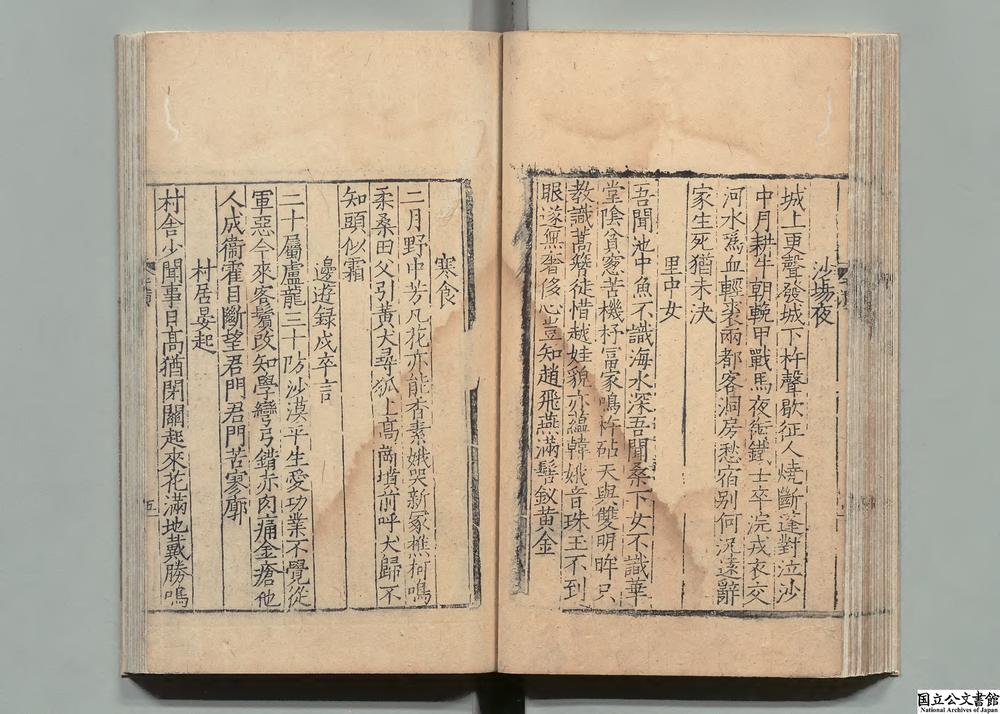 沙場夜
城上更聲發城下杵聲歇征人燒斷蓬對泣沙
中月耕牛朝輓甲戰馬夜銜鐵士卒浣戎衣交
河水爲血輕裘兩都客洞房愁宿别何況遠辭
家生死猶未決
里中女
吾聞池中魚不識海水深吾聞桑下女不識華
堂陰貧窓苦機杼富家鳴杵砧天與雙明眸只
教識蒿簪徒惜越娃貌亦蘊韓娥音珠玉不到
眼遂無奢侈心豈知趙飛燕滿髻釵黄金
寒食
二月野中芳凡花亦能香素娥哭新冢樵柯鳴
柔桑田父引黄犬尋狐上高崗墳前呼犬歸不
知頭似霜
邊遊録戍卒言
二十屬盧龍三十防沙漠平生愛功業不覺從
軍惡今來客鬢改知學彎弓錯赤肉痛金瘡他
人成衞霍目斷望君門君門苦寥廓
村居晏起
村舎少聞事日高猶閉關起來花滿地戴勝鳴
五
国立公文書館
National Archives of Japan